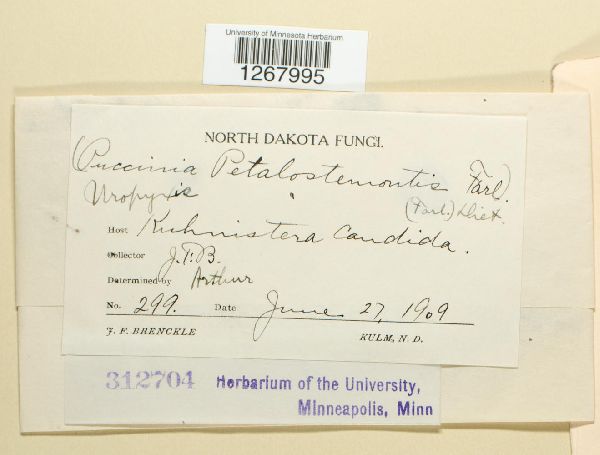 University of Minnesota Herbarium
1267995
NORTH DAKOTA FUNGI.
(Puccinia Petalostemontis Farl).
Uropyxis (Farl.) Diet.
Host Kuhnistera candida.
Collector J.F.B.
Determined by Arthur
No. 299. Date June 27, 1909
J. F. BRENCKLE KULM, N. D.
312704 Herbarium of the University,
Minneapolis, Minn